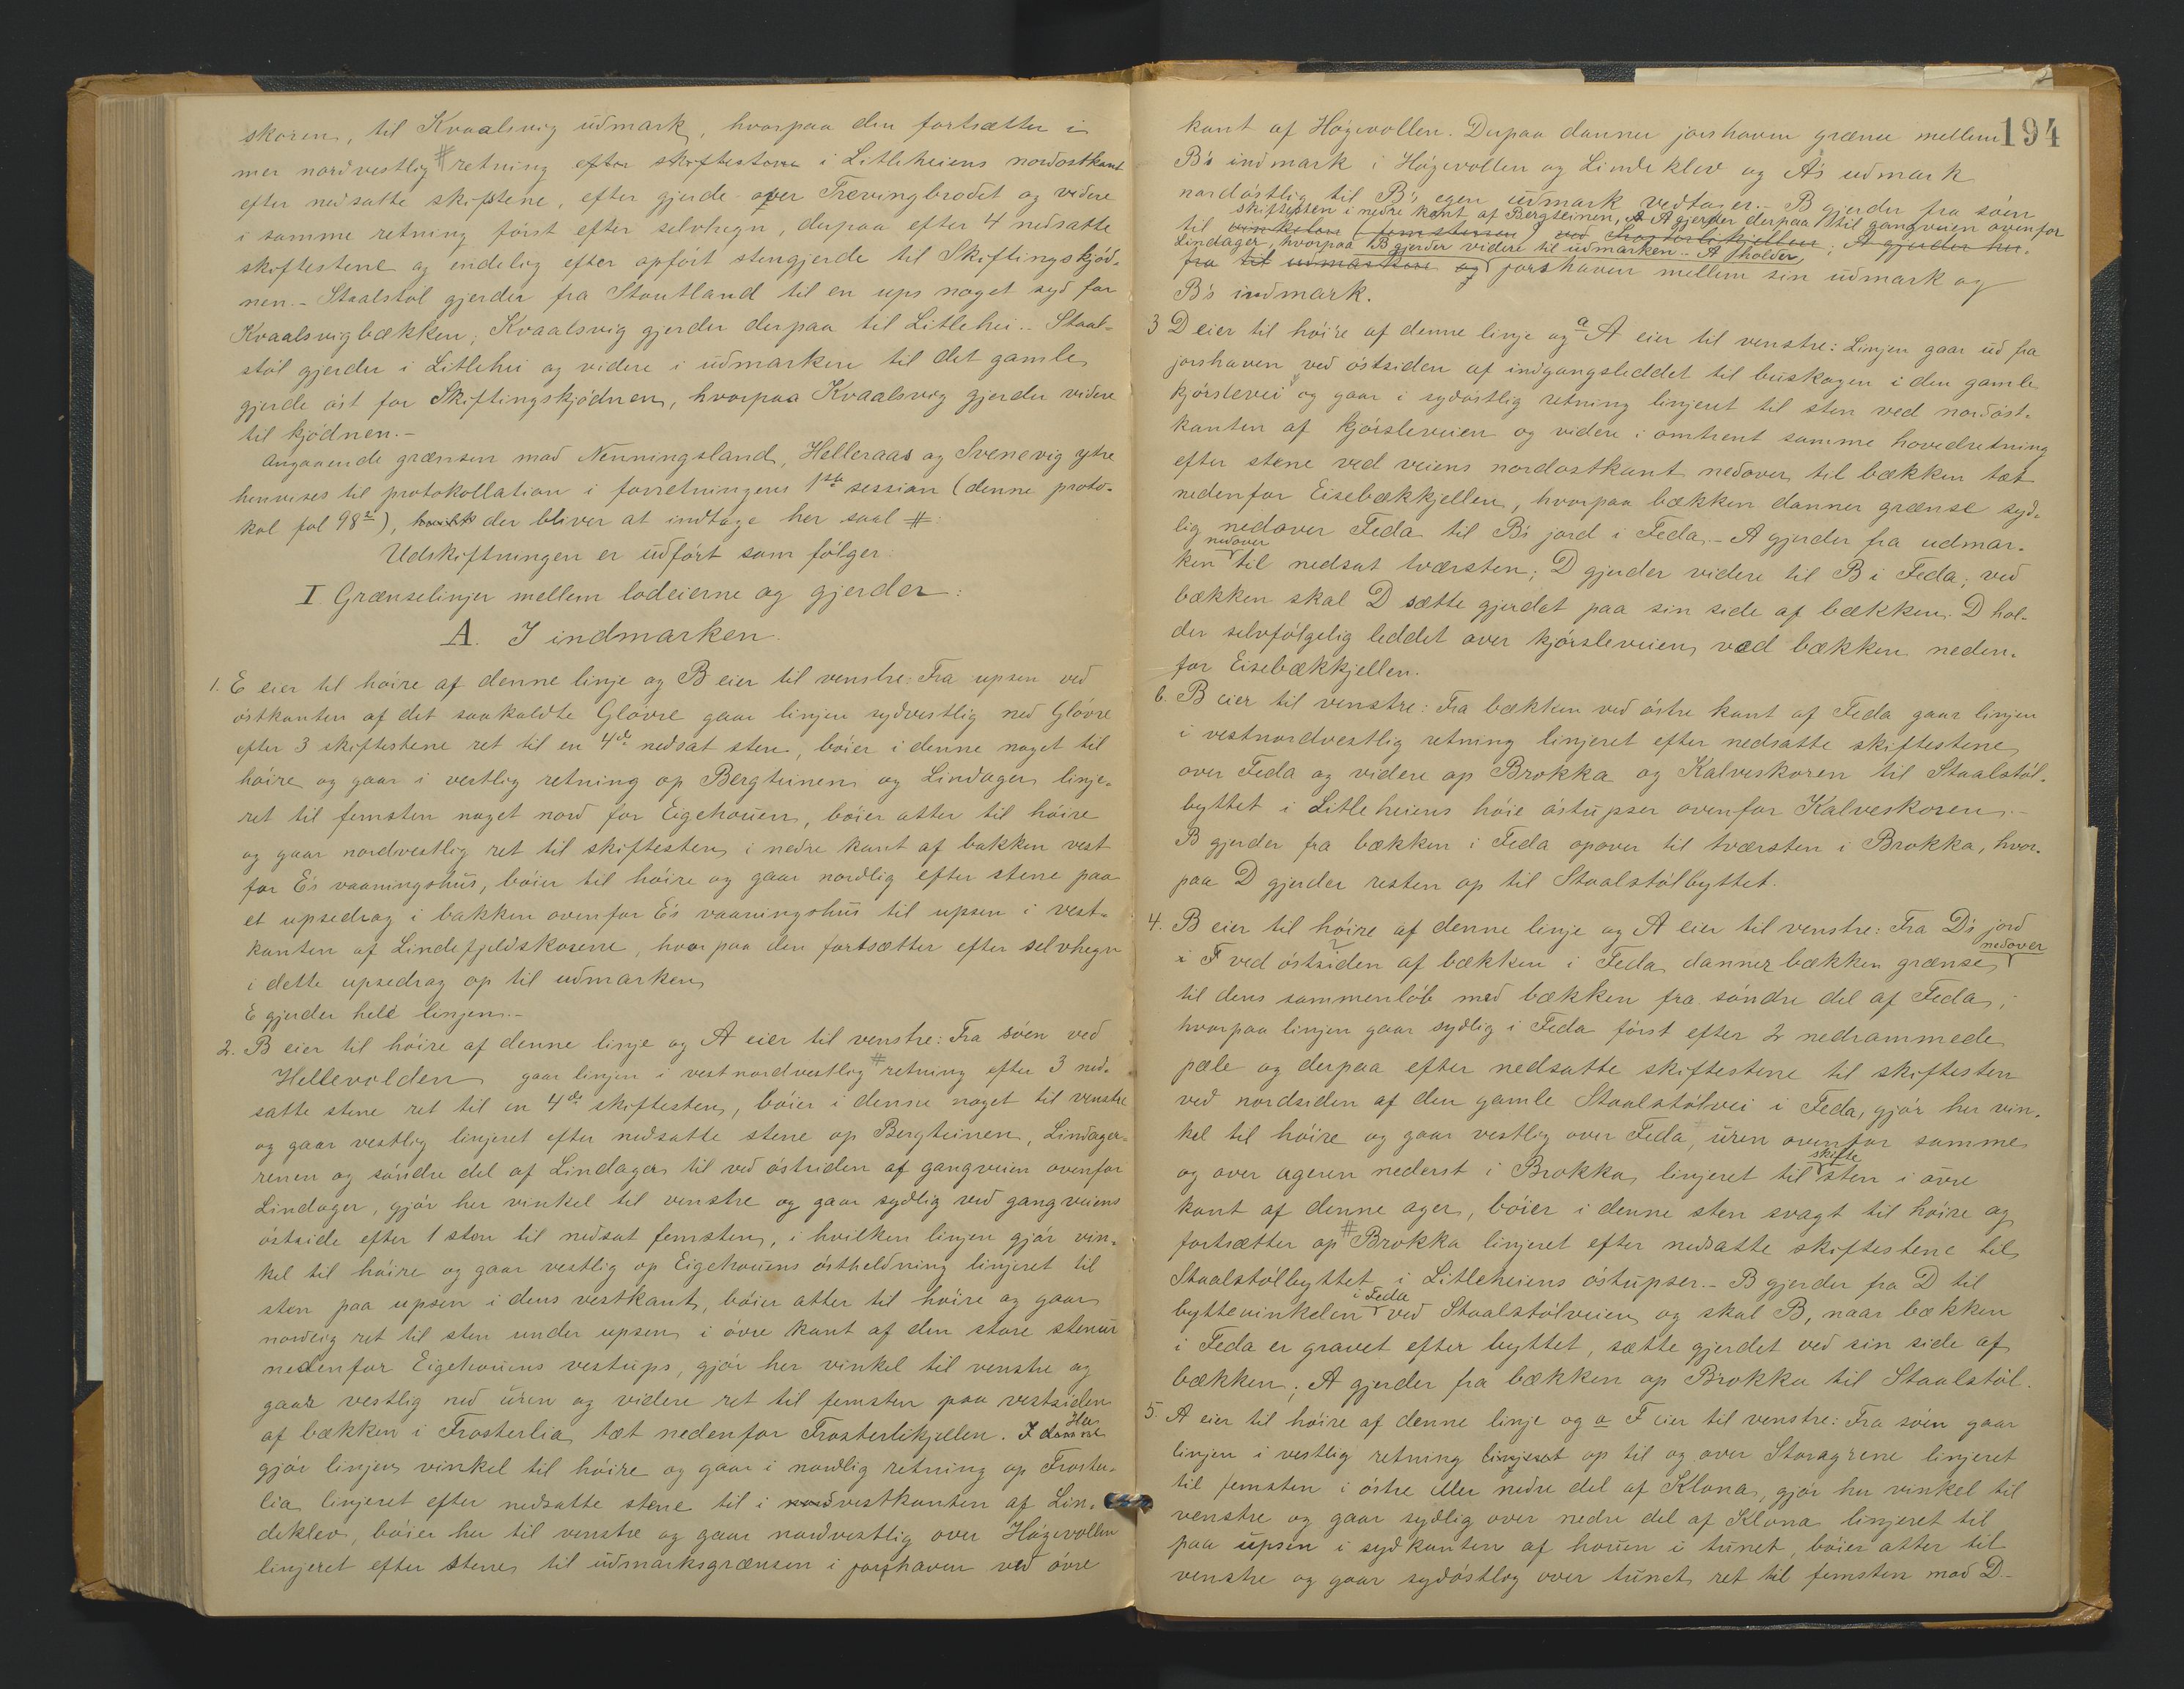 skoren, til Kvaalsvig udmark, hvorpaa den fortsætter i
mer nordvestlig # retning efter skiftestene i Litleheiens nordostkant
efter nedsatte skiftestene, efter gjerde over Trevingbrodet og videre
i samme retning først efter selvhegn, derpaa efter 4 nedsatte
skiftestene og endelig efter opført stengjerde til Skiftingskjød-
nen. - Staalstøl gjerder fra Stoutland til en ups noget syd for
Kvaalsvigbækken; Kvaalsvig gjerder derpaa til Litlehei. - Staal-
støl gjerder i Litlehei og videre i udmarken til det gamle
gjerde øst for Skiftingskjødnen, hvorpaa Kvaalsvig gjerder videre
til kjødnen. -
Angaaende grænsen mod Nenningsland, Helleraas og Svenevig ytre
henvises til protokollation i forretningens 1ste session (denne proto-
kol fol 98 2), der bliver at indtage her saal #:
Udskiftningen er udført som følger:
I. Grænselinjer mellem lodeierne og gjerder:
A. I indmarken.
1. E eier til høire af denne linje og B eier til venstre: Fra upsen ved
østkanten af det saakaldte Gløvre gaar linjen sydvestlig ned Gløvre
efter 3 skiftestene ret til en 4de nedsat sten, bøier i denne noget til
høire og gaar i vestlig retning op Bergteinen og Lindagen linje-
ret til femsten noget nord for Eigehouen, bøier atter til høire
og gaar nordvestlig ret til skiftesten i nedre kant af bakken vest
for E's vaaningshus, bøier til høire og gaar nordlig efter stene paa
et upsedrag i bakken ovenfor E's vaaningshus til upsen i vest-
kanten af Lindefjeldskorene, hvorpaa den fortsætter efter selvhegn
i dette upsedrag op til udmarken
E gjerder hele linjen. -
2. B eier til høire af denne linje og A eier til venstre: Fra søen ved
Hellevolden gaar linjen i vestnordvestlig # retning efter 3 ned-
satte stene ret til en 4de skiftesten, bøier i denne noget til venstre
og gaar vestlig linjeret efter nedsatte stene op Bergteinen, Lindager-
renen og søndre del af Lindager til ved østsiden af gangveien ovenfor
Lindager, gjør her vinkel til venstre og gaar sydlig ved gangveiens
østside efter 1 sten til nedsat femsten, i hvilken linjen gjør vin-
kel til høire og gaar vestlig op Eigehouens østheldning linjeret til
sten paa upsen i dens vestkant, bøier atter til høire og gaar
nordlig ret til sten under upsen i øvre kant af den store stenur
nedenfor Eigehouens vestups, gjør her vinkel til venstre og
gaar vestlig ned uren og videre ret til femsten paa vestsiden
af bækken i Frosterlia tæt nedenfor Frosterlikjellen. I denne Her
gjør linjen vinkel til høire og gaar i nordlig retning op Froster-
lia linjeret efter nedsatte stene til i nordvestkanten af Lin-
deklev, bøier her til venstre og gaar nordvestlig over Høgevollen
linjeret efter stene til udmarksgrænsen i jorshaven ved øvre
194
kant af Høgevollen. Derpaa danner jorshaven grænse mellem
B's indmark i Høgevollen og Lindeklev og A's udmark
nordøstlig til B's egen udmark vedtager. - B gjerder fra søen
skiftesten i nedre kant af Bergteinen, A gjerder derpaa til gangveien ovenfor
til vinkelen (femstenen) ved Frosterlikjellen; A gjerder her-
Lindager, hvorpaa B gjerder videre til udmarken. - A holder
fra til udmarken og jorshaven mellem sin udmark og
B's indmark.
3 D eier til høire af denne linje og a A eier til venstre: Linjen gaar ud fra
jorshaven ved østsiden af indgangsleddet til buskogen i den gamle
kjørslevei og gaar i sydøstlig retning linjeret til sten ved nordøst-
kanten af kjørsleveien og videre i omtrent samme hovedretning
efter stene ved veiens nordostkant nedover til bækken tæt
nedenfor Eisebækkjellen, hvorpaa bækken danner grænse syd-
lig nedover Feda til B's jord i Feda. - A gjerder fra udmar-
nedover
ken til nedsat tværsten; D gjerder videre til B i Feda; ved
bækken skal D sætte gjerdet paa sin side af bækken. D hol-
der selvfølgelig leddet over kjørsleveien ved bækken neden-
for Eisebækkjellen.
6. B eier til venstre: Fra bækken ved østre kant af Feda gaar linjen
i vestnordvestlig retning linjeret efter nedsatte skiftestene
over Feda og videre op Brokka og Kalveskoren til Staalstøl-
byttet i Litleheiens høie østupser ovenfor Kalveskoren. -
B gjerder fra bækken i Feda opover til tværsten i Brokka, hvor-
paa D gjerder resten op til Staalstølbyttet.
4. B eier til høire af denne linje og A eier til venstre: Fra D's jord
nedover
i F ved østsiden af bækken i Feda danner bækken grænse
til dens sammenløb med bækken fra søndre del af Feda,
hvorpaa linjen gaar sydlig i Feda først efter 2 nedrammede
pæle og derpaa efter nedsatte skiftestene til skiftesten
ved nordsiden af den gamle Staalstølvei i Feda, gjør her vin-
kel til høire og gaar vestlig over Feda, uren ovenfor samme
skifte
og over ageren nederst i Brokka linjeret til sten i øvre
kant af denne ager, bøier i denne sten svagt til høire og
fortsætter op # Brokka linjeret efter nedsatte skiftestene til
Staalstølbyttet i Litleheiens østupser. - B gjerder fra D til
i Feda
byttevinkelen ved Staalstølveien og skal B, naar bækken
i Feda er gravet efter byttet, sætte gjerdet ved sin side af
bækken; A gjerder fra bækken op Brokka til Staalstøl.
5. A eier til høire af denne linje og a F eier til venstre: Fra søen gaar
linjen i vestlig retning linjeret op til og over Storagrene linjeret
til femsten i østre eller nedre del af Klona, gjør her vinkel til
venstre og gaar sydlig over nedre del af Klona linjeret til
paa upsen i sydkanten af houen i tunet, bøier atter til
venstre og gaar sydøstlig over tunet ret til femsten mod D-